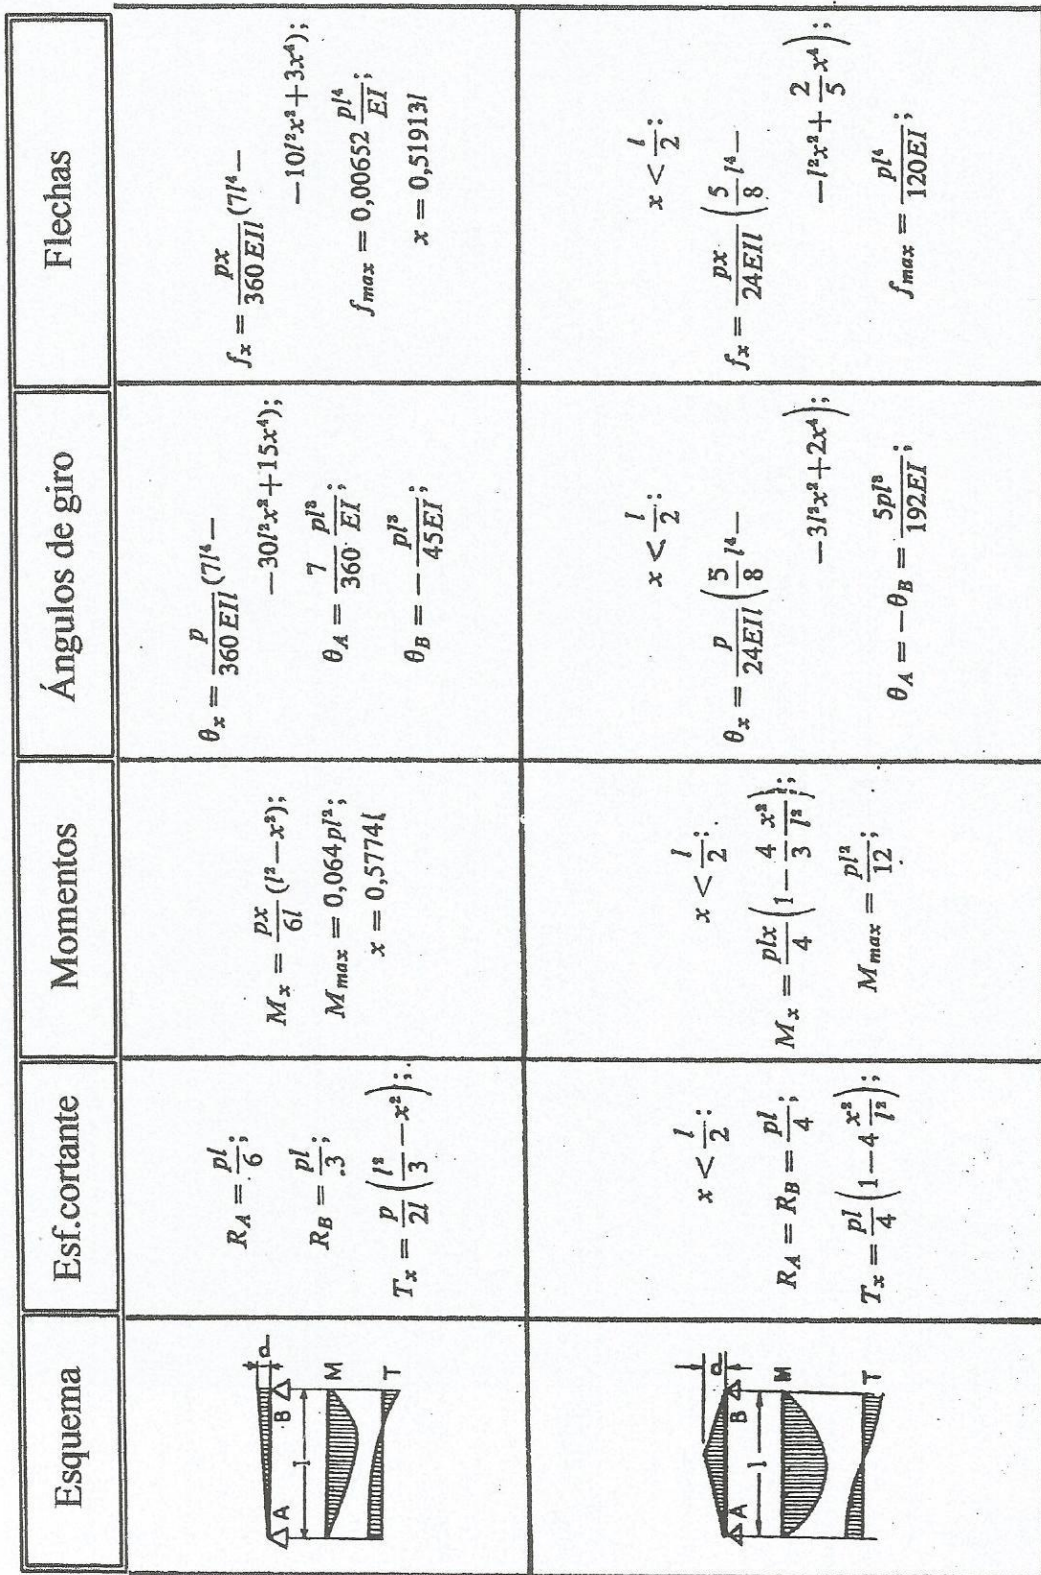 Esquema
Esf.cortante
Momentos
Ángulos de giro
Flechas
A
B
p
l
M
T
R_A = pl/6;
R_B = pl/.3;
T_x = p/2l (l²/3 − x²);.
M_x = px/6l (l² − x²);
M_max = 0,064pl²;
x = 0,5774l
θ_x = p/360 EIl (7l⁴ −
−30l²x² + 15x⁴);
θ_A = 7/360 pl³/EI;
θ_B = − pl³/45EI;
f_x = px/360 EIl (7l⁴ −
−10l²x² + 3x⁴);
f_max = 0,00652 pl⁴/EI;
x = 0,51913l
A
B
p
l
M
T
x < l/2:
R_A = R_B = pl/4;
T_x = pl/4 (1 − 4 x²/l²);
x < l/2:
M_x = plx/4 (1 − 4/3 x²/l²);
M_max = pl²/12;
x < l/2:
θ_x = p/24EIl (5/8 l⁴ −
−3l²x² + 2x⁴);
θ_A = −θ_B = 5pl³/192EI;
x < l/2:
f_x = px/24EIl (5/8 l⁴ −
−l²x² + 2/5 x⁴);
f_max = pl⁴/120EI;